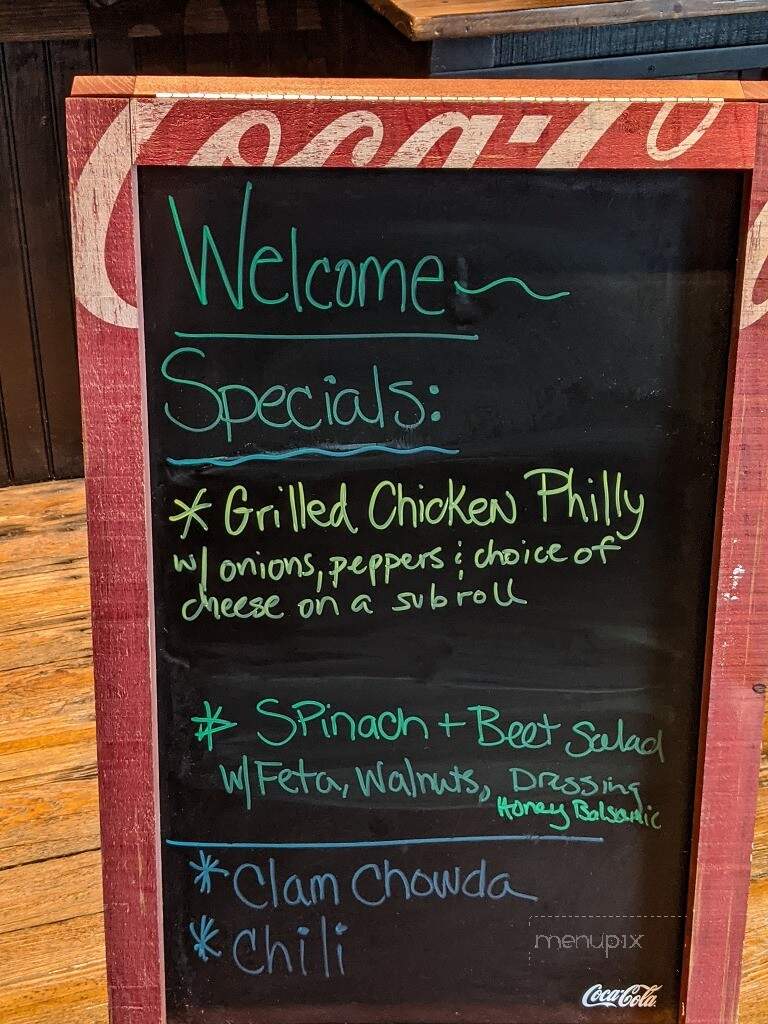 Coca-Co
Welcome~
Specials:
* Grilled Chicken Philly
w/ onions, peppers & choice of
cheese on a sub roll
* Spinach + Beet Salad
w/ Feta, Walnuts, Dressing
Honey Balsamic
* Clam Chowda
* Chili
menupix
Coca-Cola